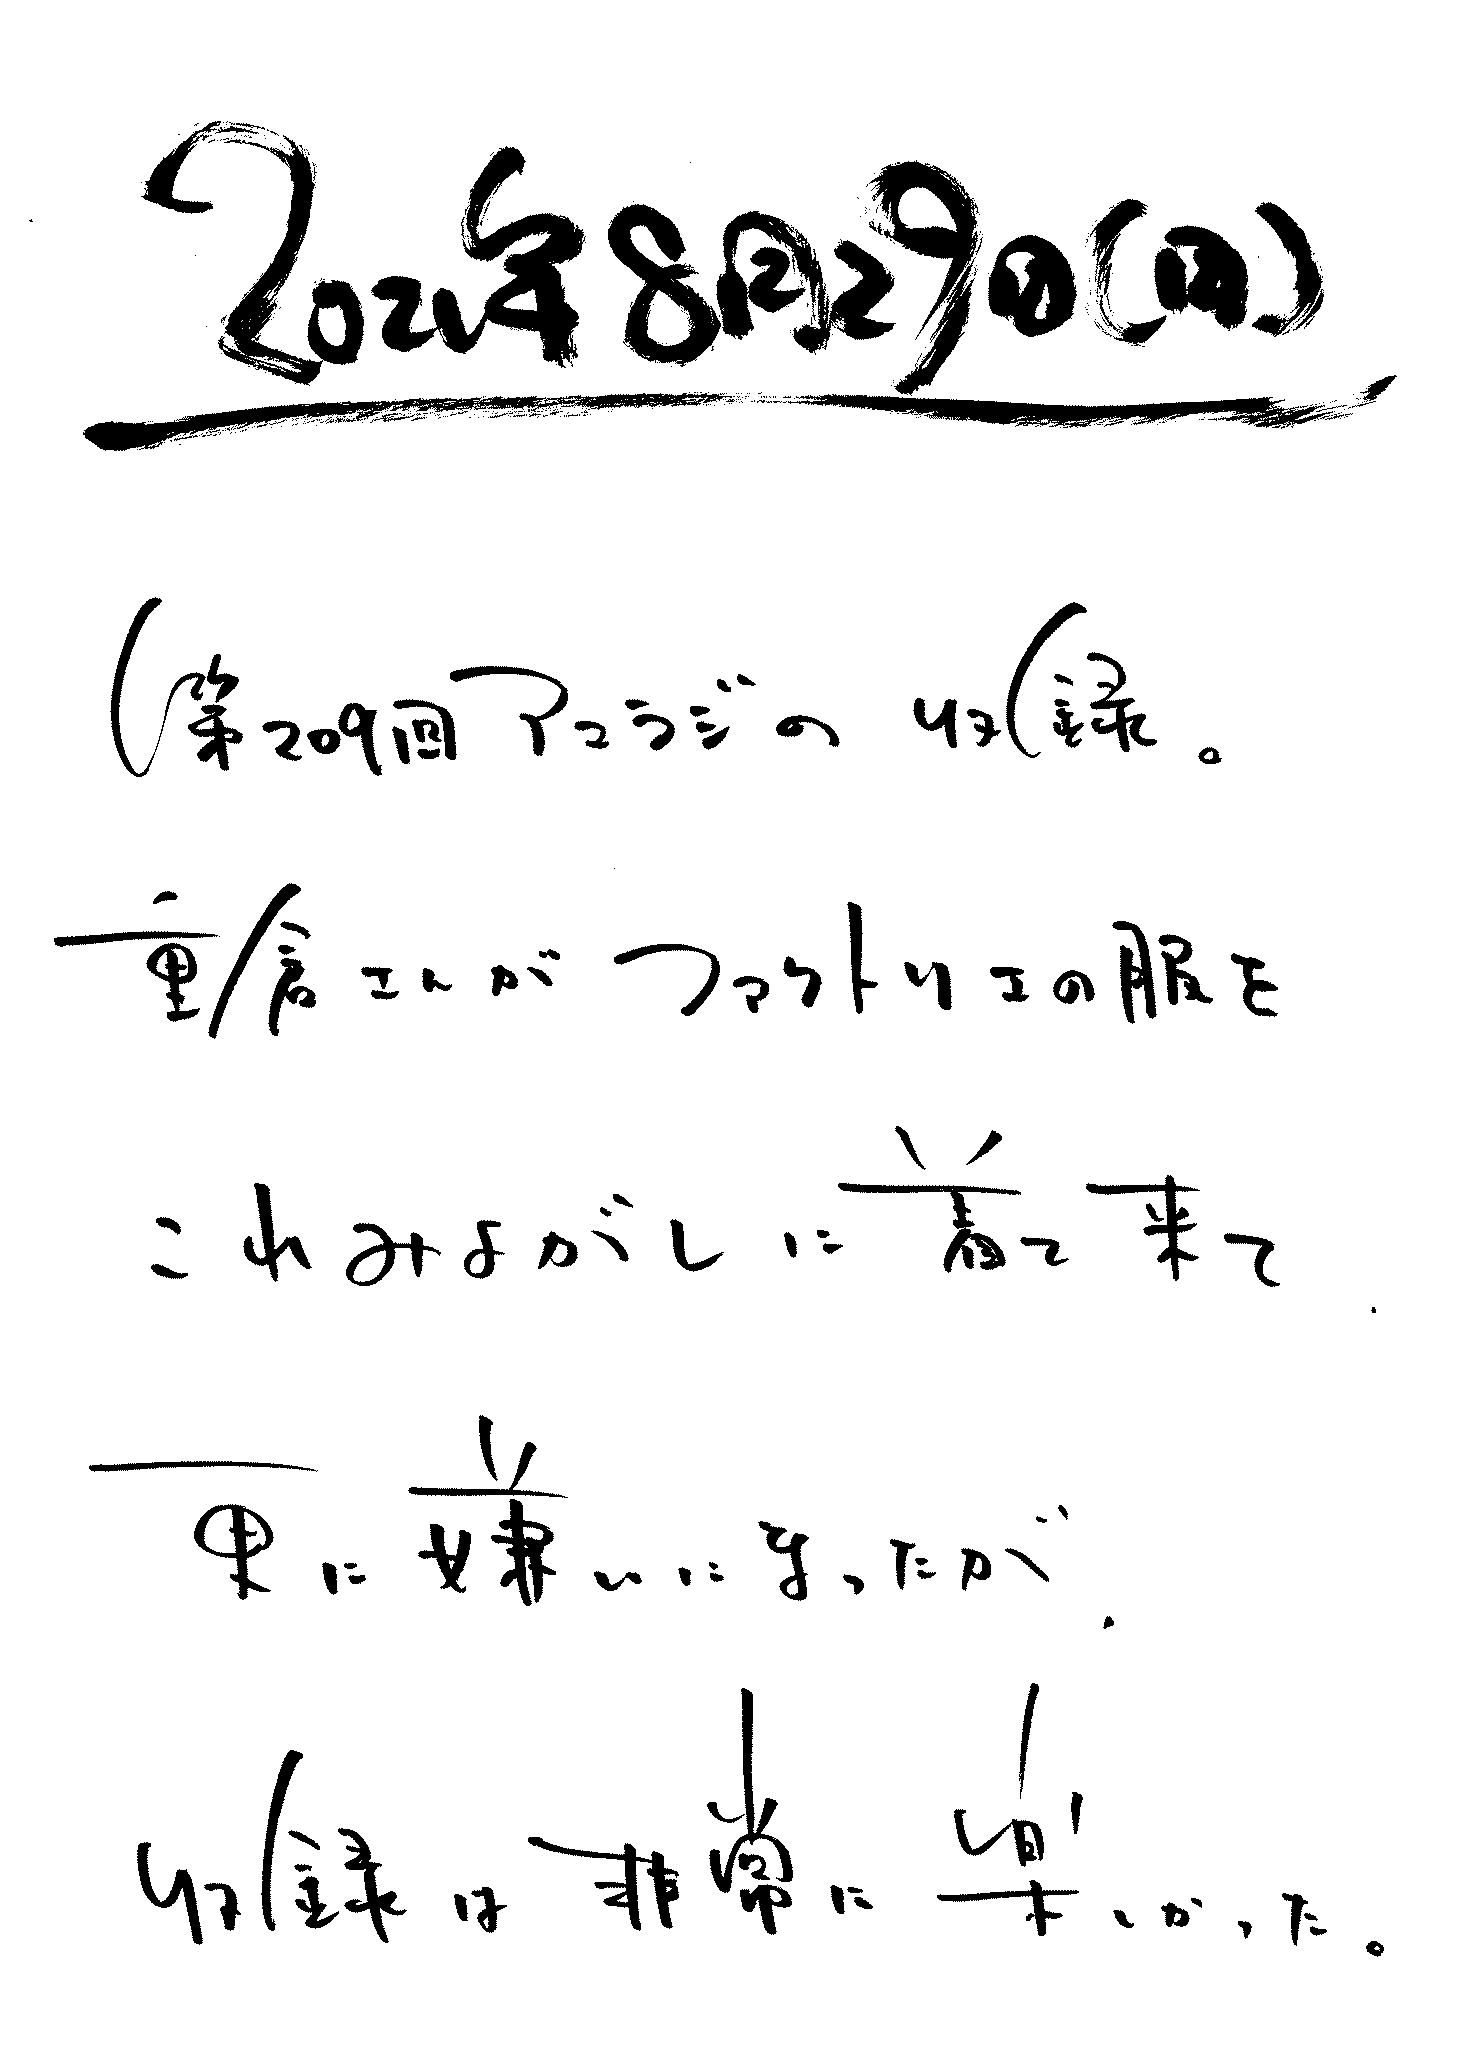 2021年8月29日(日)
第209回アコラジの収録。
重信さんがファクトリエの服を
これみよがしに着て来て
更に嫌いになったが、
収録は非常に楽しかった。